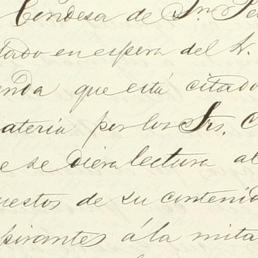 Condesa de Sn. Pe
tado en espera del Sr.
nda que está citado
ateria por los Srs. C
e se diera lectura al
uestos de su contenido
spirantes á la mita